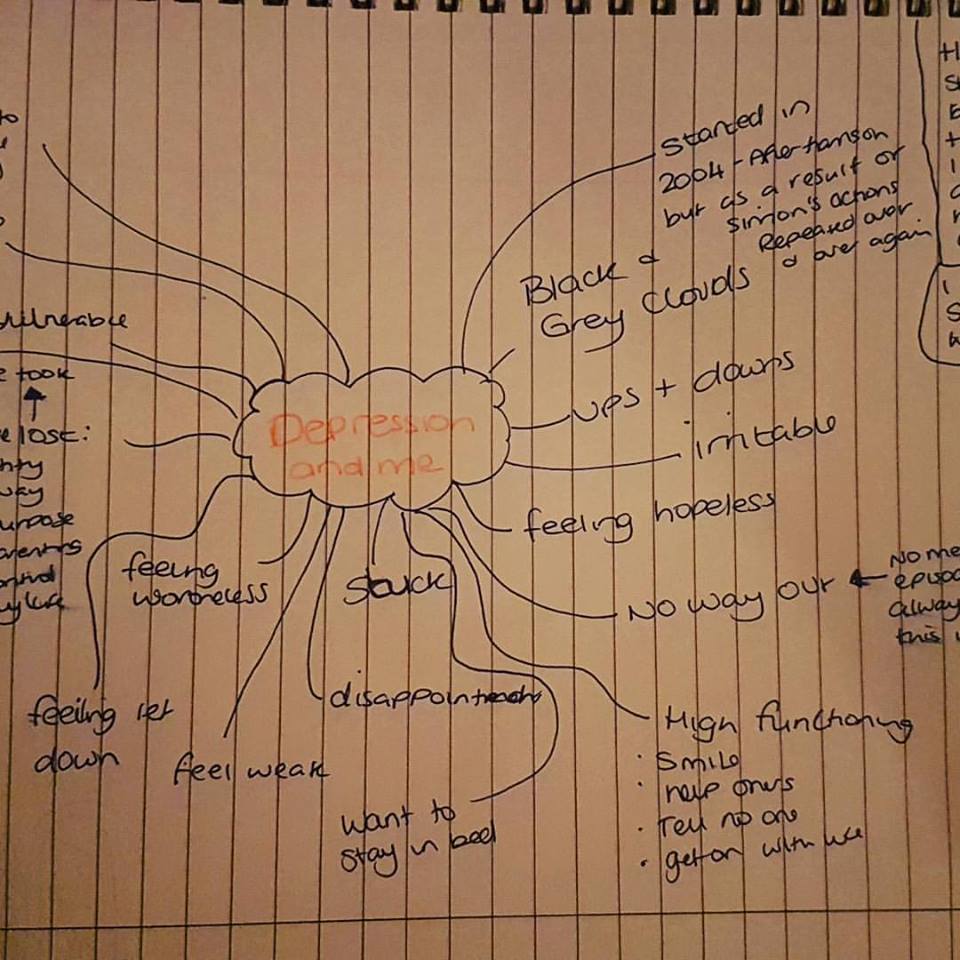 Depression
and me
Started in
2004 - After Harrison
but as a result of
Simon's actions
Repeated over
& over again
Black &
Grey Clouds
ups + downs
irritable
feeling hopeless
No way out
No me
always
this
High functioning
· Smile
· help others
· Tell no one
· get on with life
want to
stay in bed
disappointment
Stuck
feel weak
feeling
worthless
feeling let
down
vulnerable
took
lost:
way
purpose